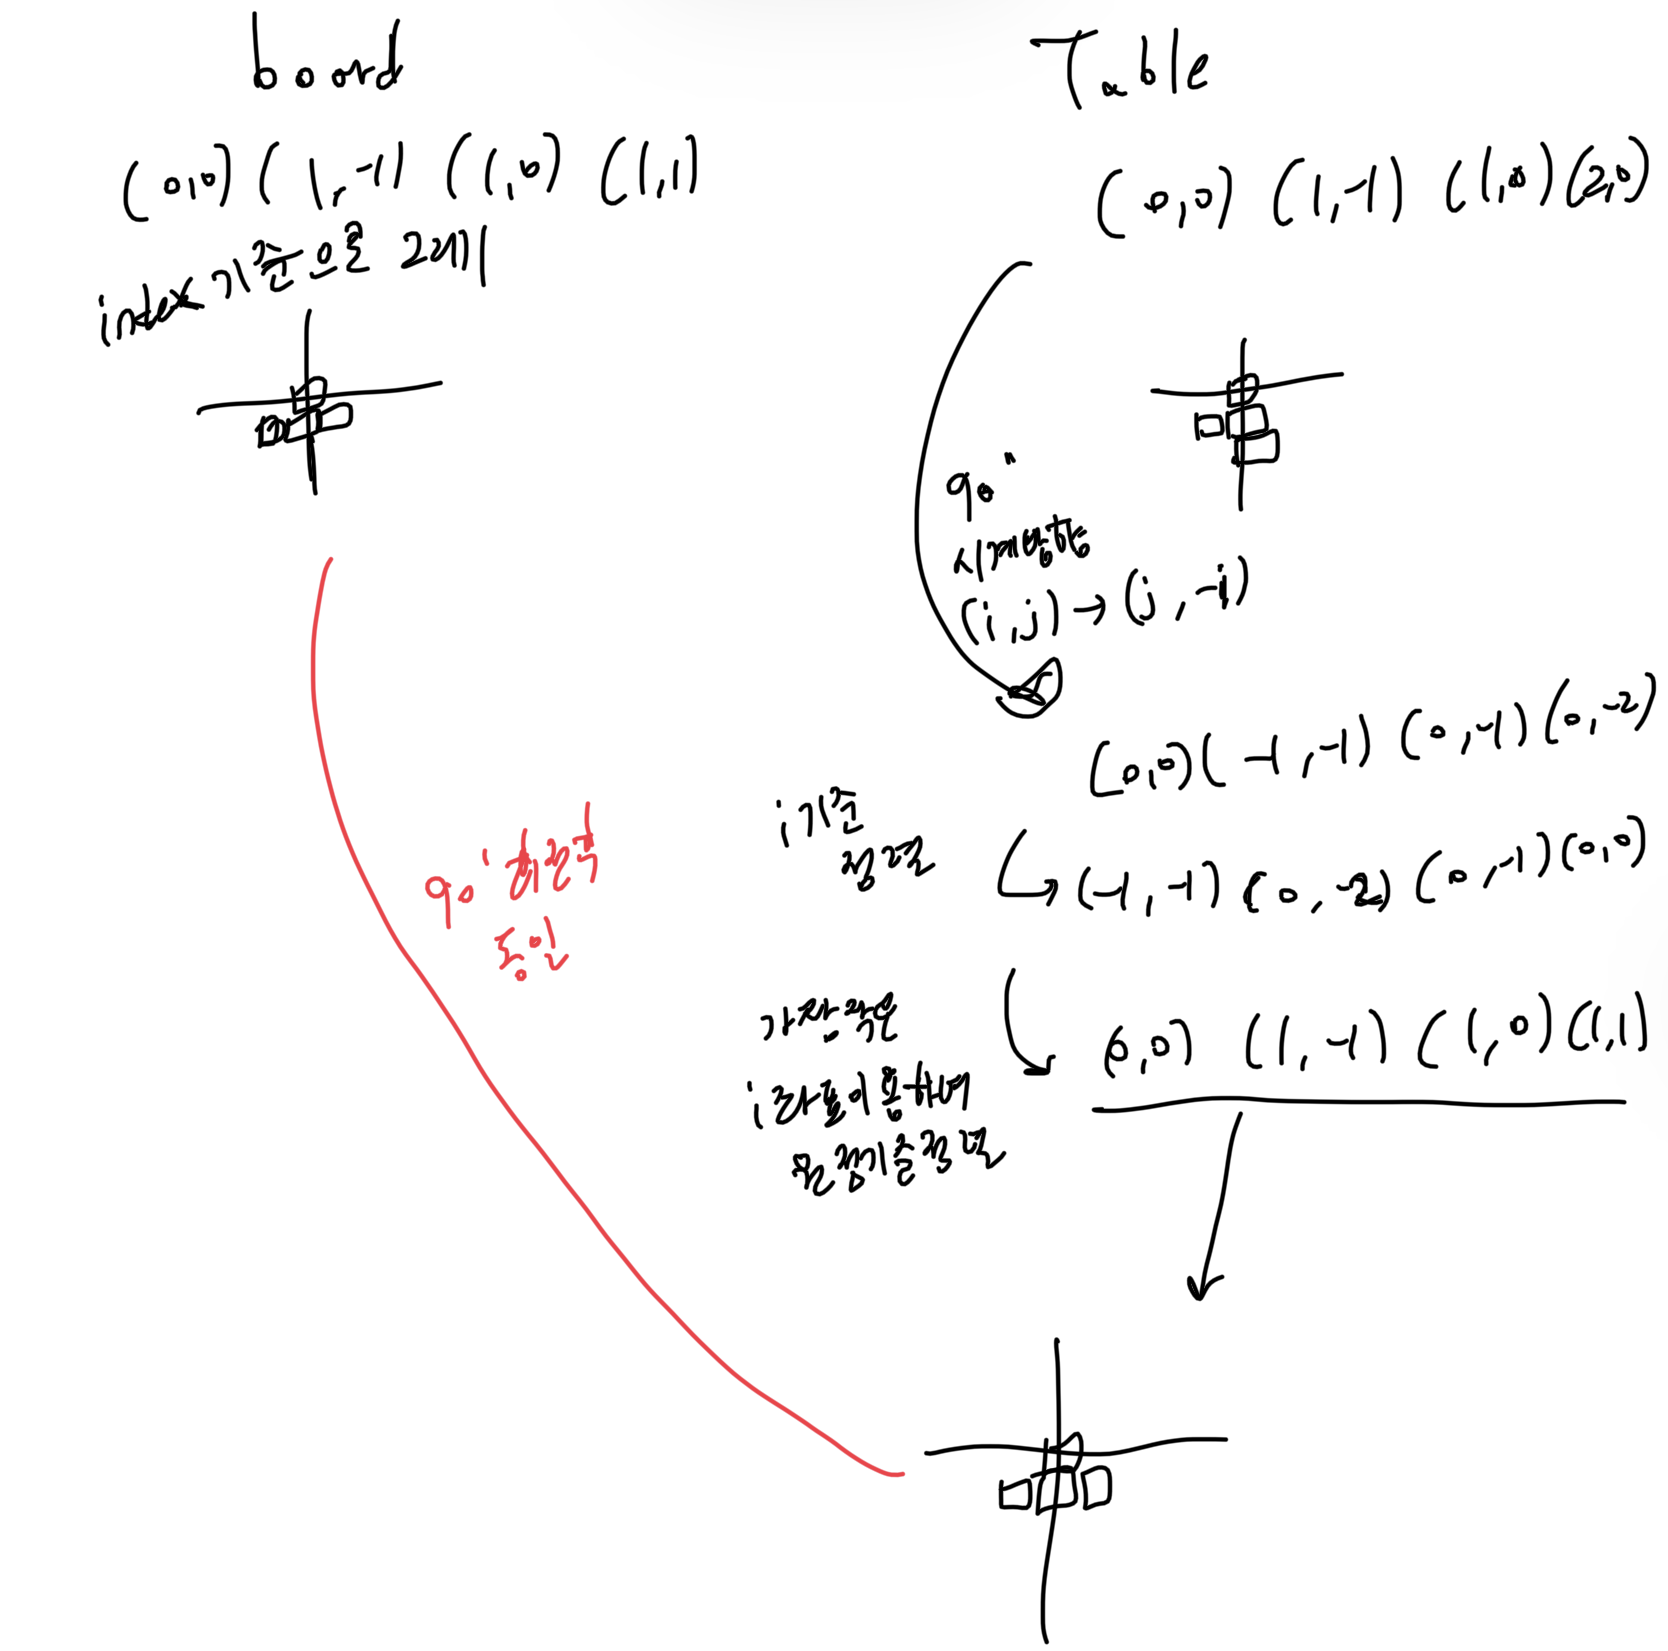 board
(0,0) (1,-1) (1,0) (1,1)
index 기준으로 그래
Table
(0,0) (1,-1) (1,0) (2,0)
90°
시계방향
(i,j) → (j,-i)
(0,0) (-1,-1) (0,-1) (0,-2)
i 기준
정렬
(-1,-1) (0,-2) (0,-1) (0,0)
가장 작은
i 좌표 이용하여
원점기준정렬
(0,0) (1,-1) (1,0) (1,1)
90' 회전후
동일